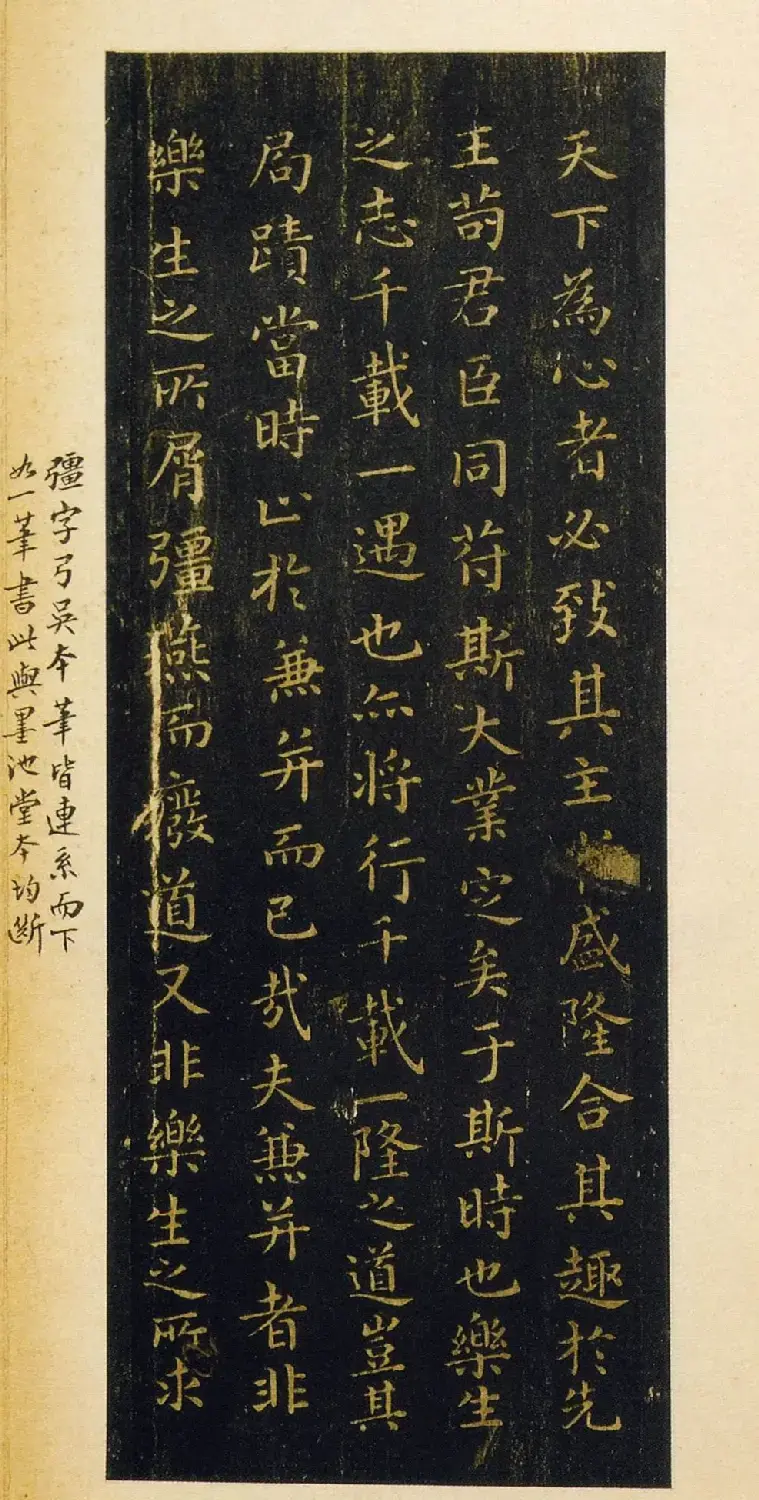 天下為心者必致其主於盛隆合其趣於先
王苟君臣同苻斯大業定矣于斯時也樂生
之志千載一遇也亦將行千載一隆之道豈其
局蹟當時止於兼并而已哉夫兼并者非
樂生之所屑彊燕而癈道又非樂生之所求
彊字弓吳本筆皆連系而下
如一筆書此與墨池堂本均斷